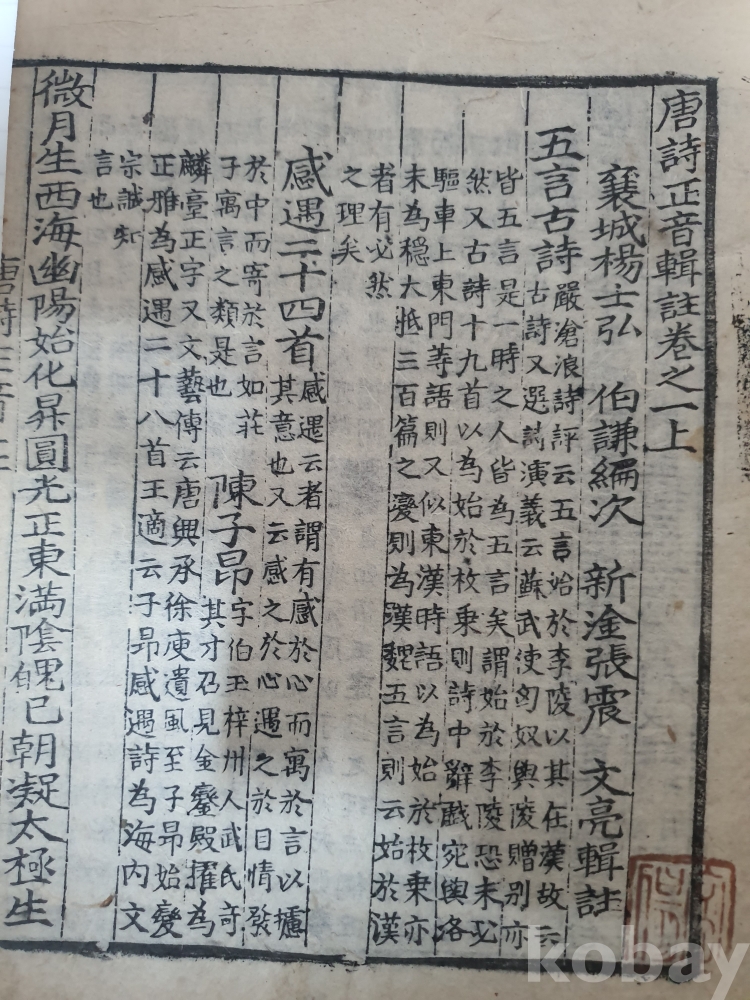 唐詩正音輯註卷之一上
襄城楊士弘　伯謙編次　新淦張震　文亮輯註
五言古詩
嚴滄浪詩評云五言始於李陵以其在漢故云
古詩又選詩演義云蘇武使匈奴與陵贈別亦
皆五言是一時之人皆為五言矣謂始於李陵恐未必
然又古詩十九首以為始於枚乗則詩中辭戲宛與洛
驅車上東門等語則又似東漢時語以為始於枚乗亦
未為穩大抵三百篇之變則為漢魏五言則云始於漢
者有必然
之理矣
感遇二十四首
感遇云者謂有感於心而寓於言以攄
其意也又云感之於心遇之於目情發
於中而寄於言如莊
子寓言之類是也
陳子昂
字伯玉梓州人武氏竒
其才召見金鑾殿擢為
麟臺正字又文藝傳云唐興承徐庾遺風至子昂始變
正雅為感遇二十八首王適云子昂感遇詩為海内文
宗誠知
言也
微月生西海幽陽始化昇圓光正東滿陰魄已朝凝太極生
kobay